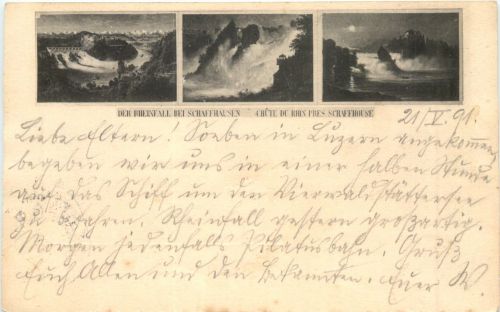 DER RHEINFALL BEI SCHAFFHAUSEN CHÛTE DU RHIN PRÈS SCHAFFHOUSE
21/V. 91.
Liebe Eltern! Soeben in Luzern angekommen
begeben wir uns in einer halben Stunde
auf das Schiff um den Vierwaldstättersee
zu befahren. Rheinfall gestern großartig.
Morgen jedenfalls Pilatusbahn. Gruß
Euch Allen und den Bekannten. Euer W.